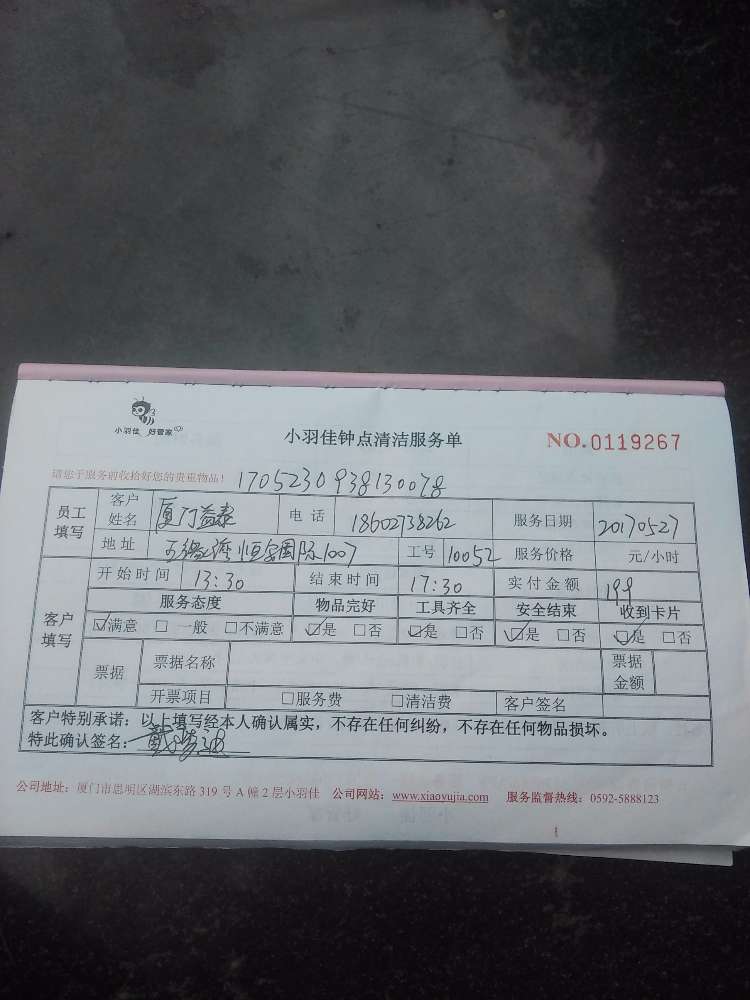 小羽佳 好管家
小羽佳钟点清洁服务单
NO.0119267
请您于服务前收拾好您的贵重物品!
1705230938130078
员工填写 客户姓名 厦门益泰 电话 18602738262 服务日期 20170527
地址 五缘湾恒安国际1007 工号 10052 服务价格 元/小时
客户填写 开始时间 13:30 结束时间 17:30 实付金额 199
服务态度 物品完好 工具齐全 安全结束 收到卡片
☑满意 □一般 □不满意 ☑是 □否 ☑是 □否 ☑是 □否 ☑是 □否
票据 票据名称 票据金额
开票项目 □服务费 □清洁费 客户签名
客户特别承诺:以上填写经本人确认属实,不存在任何纠纷,不存在任何物品损坏。
特此确认签名:戴
公司地址:厦门市思明区湖滨东路 319 号 A 幢 2 层小羽佳 公司网站:www.xiaoyujia.com 服务监督热线:0592-5888123
1